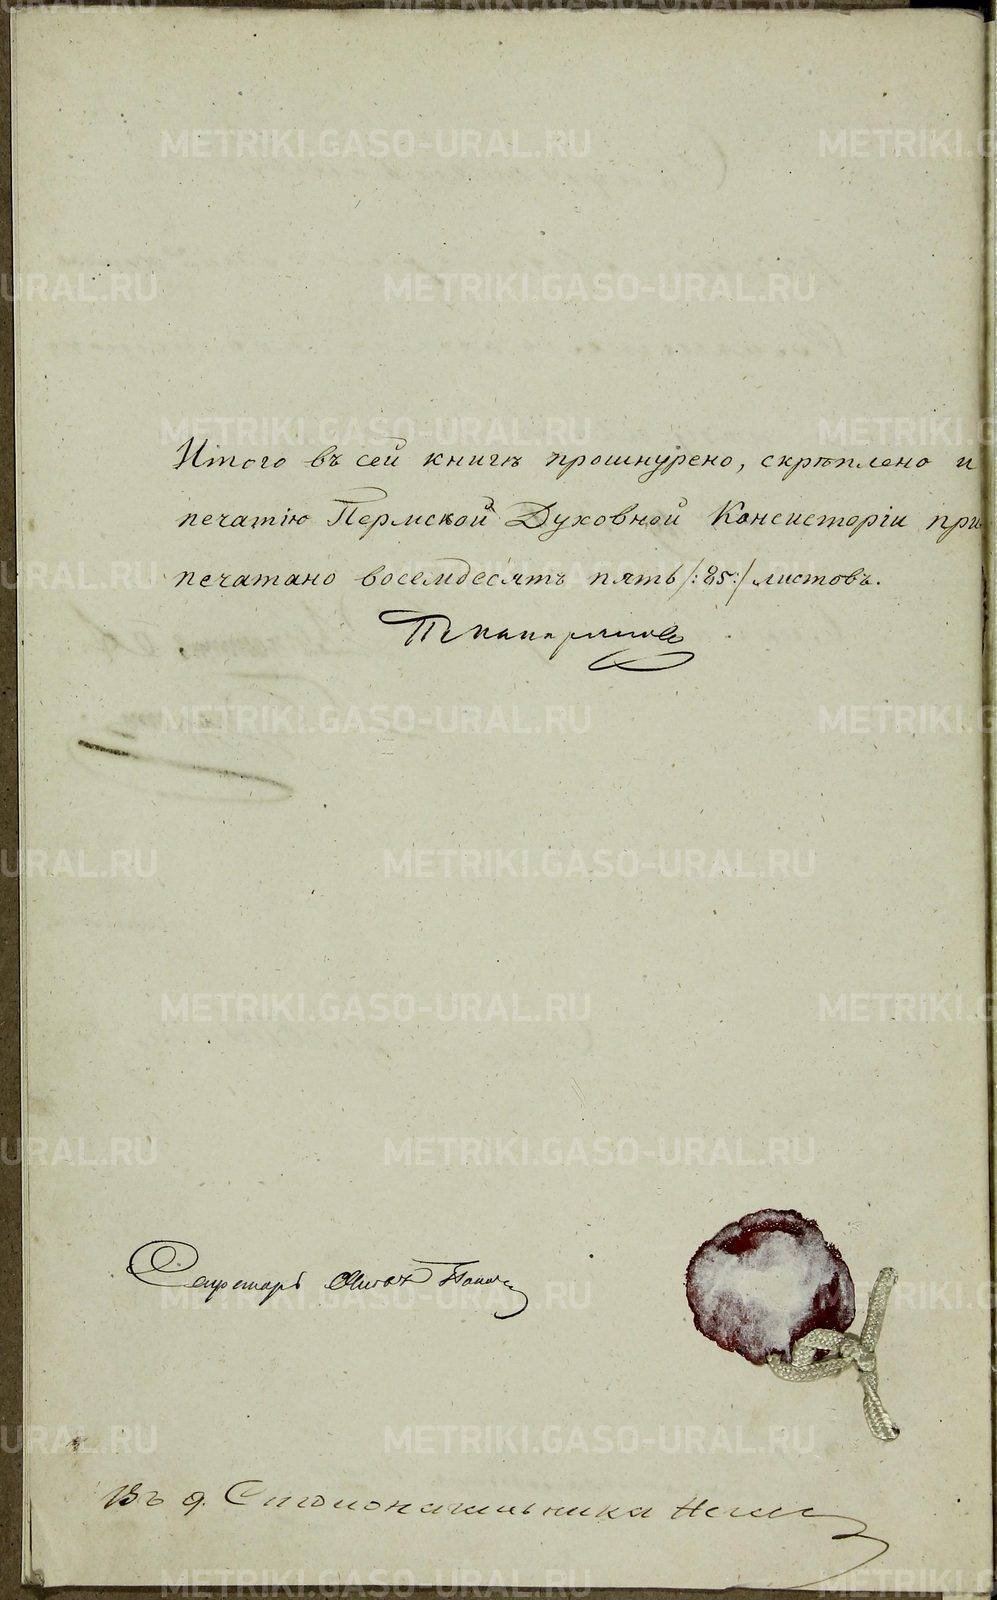 Итого въ сей книгѣ прошнурено, скрѣплено и
печатію Пермской Духовной Консисторіи при
печатано восемдесятъ пять /:85:/ листовъ.
Секретарь
Въ д. Столоначальника
METRIKI.GASO-URAL.RU